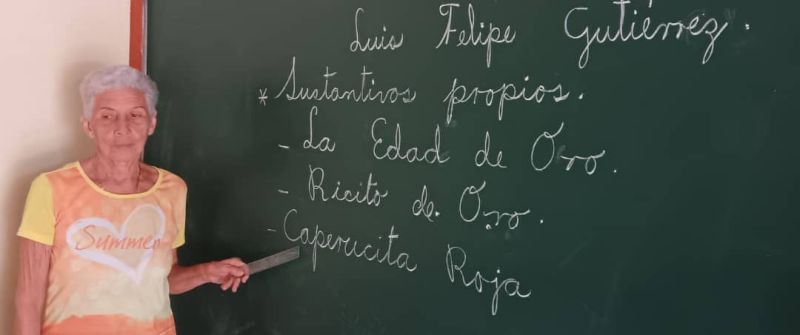 Luis Felipe Gutiérrez.
* Sustantivos propios.
- La Edad de Oro.
- Ricito de Oro.
- Caperucita Roja
Summer